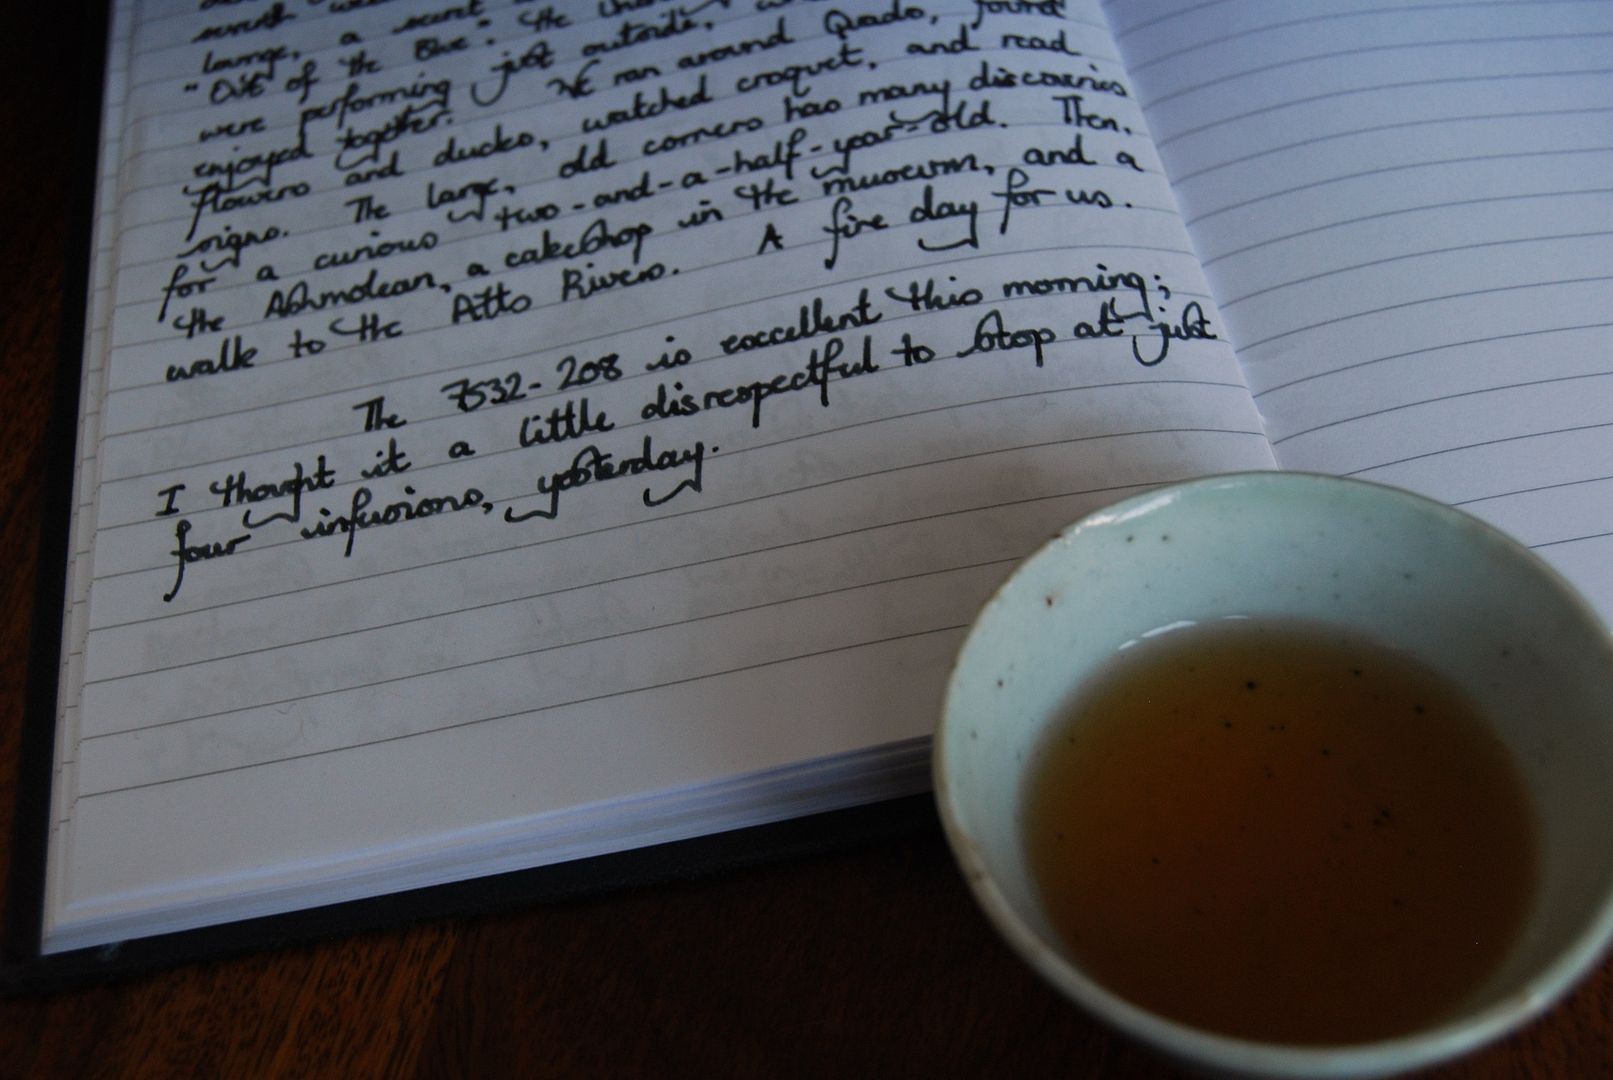 lounge, a secret
"Out of the Blue". He
were performing just outside,
enjoyed together. We ran around Quads, found
flowers and ducks, watched croquet, and read
signs. The large, old corners has many discoveries
for a curious two-and-a-half-year-old. Then,
the Ashmolean, a cakeshop in the museum, and a
walk to the Pitts Rivers. A fine day for us.
The 7532-208 is excellent this morning;
I thought it a little disrespectful to stop at just
four infusions, yesterday.